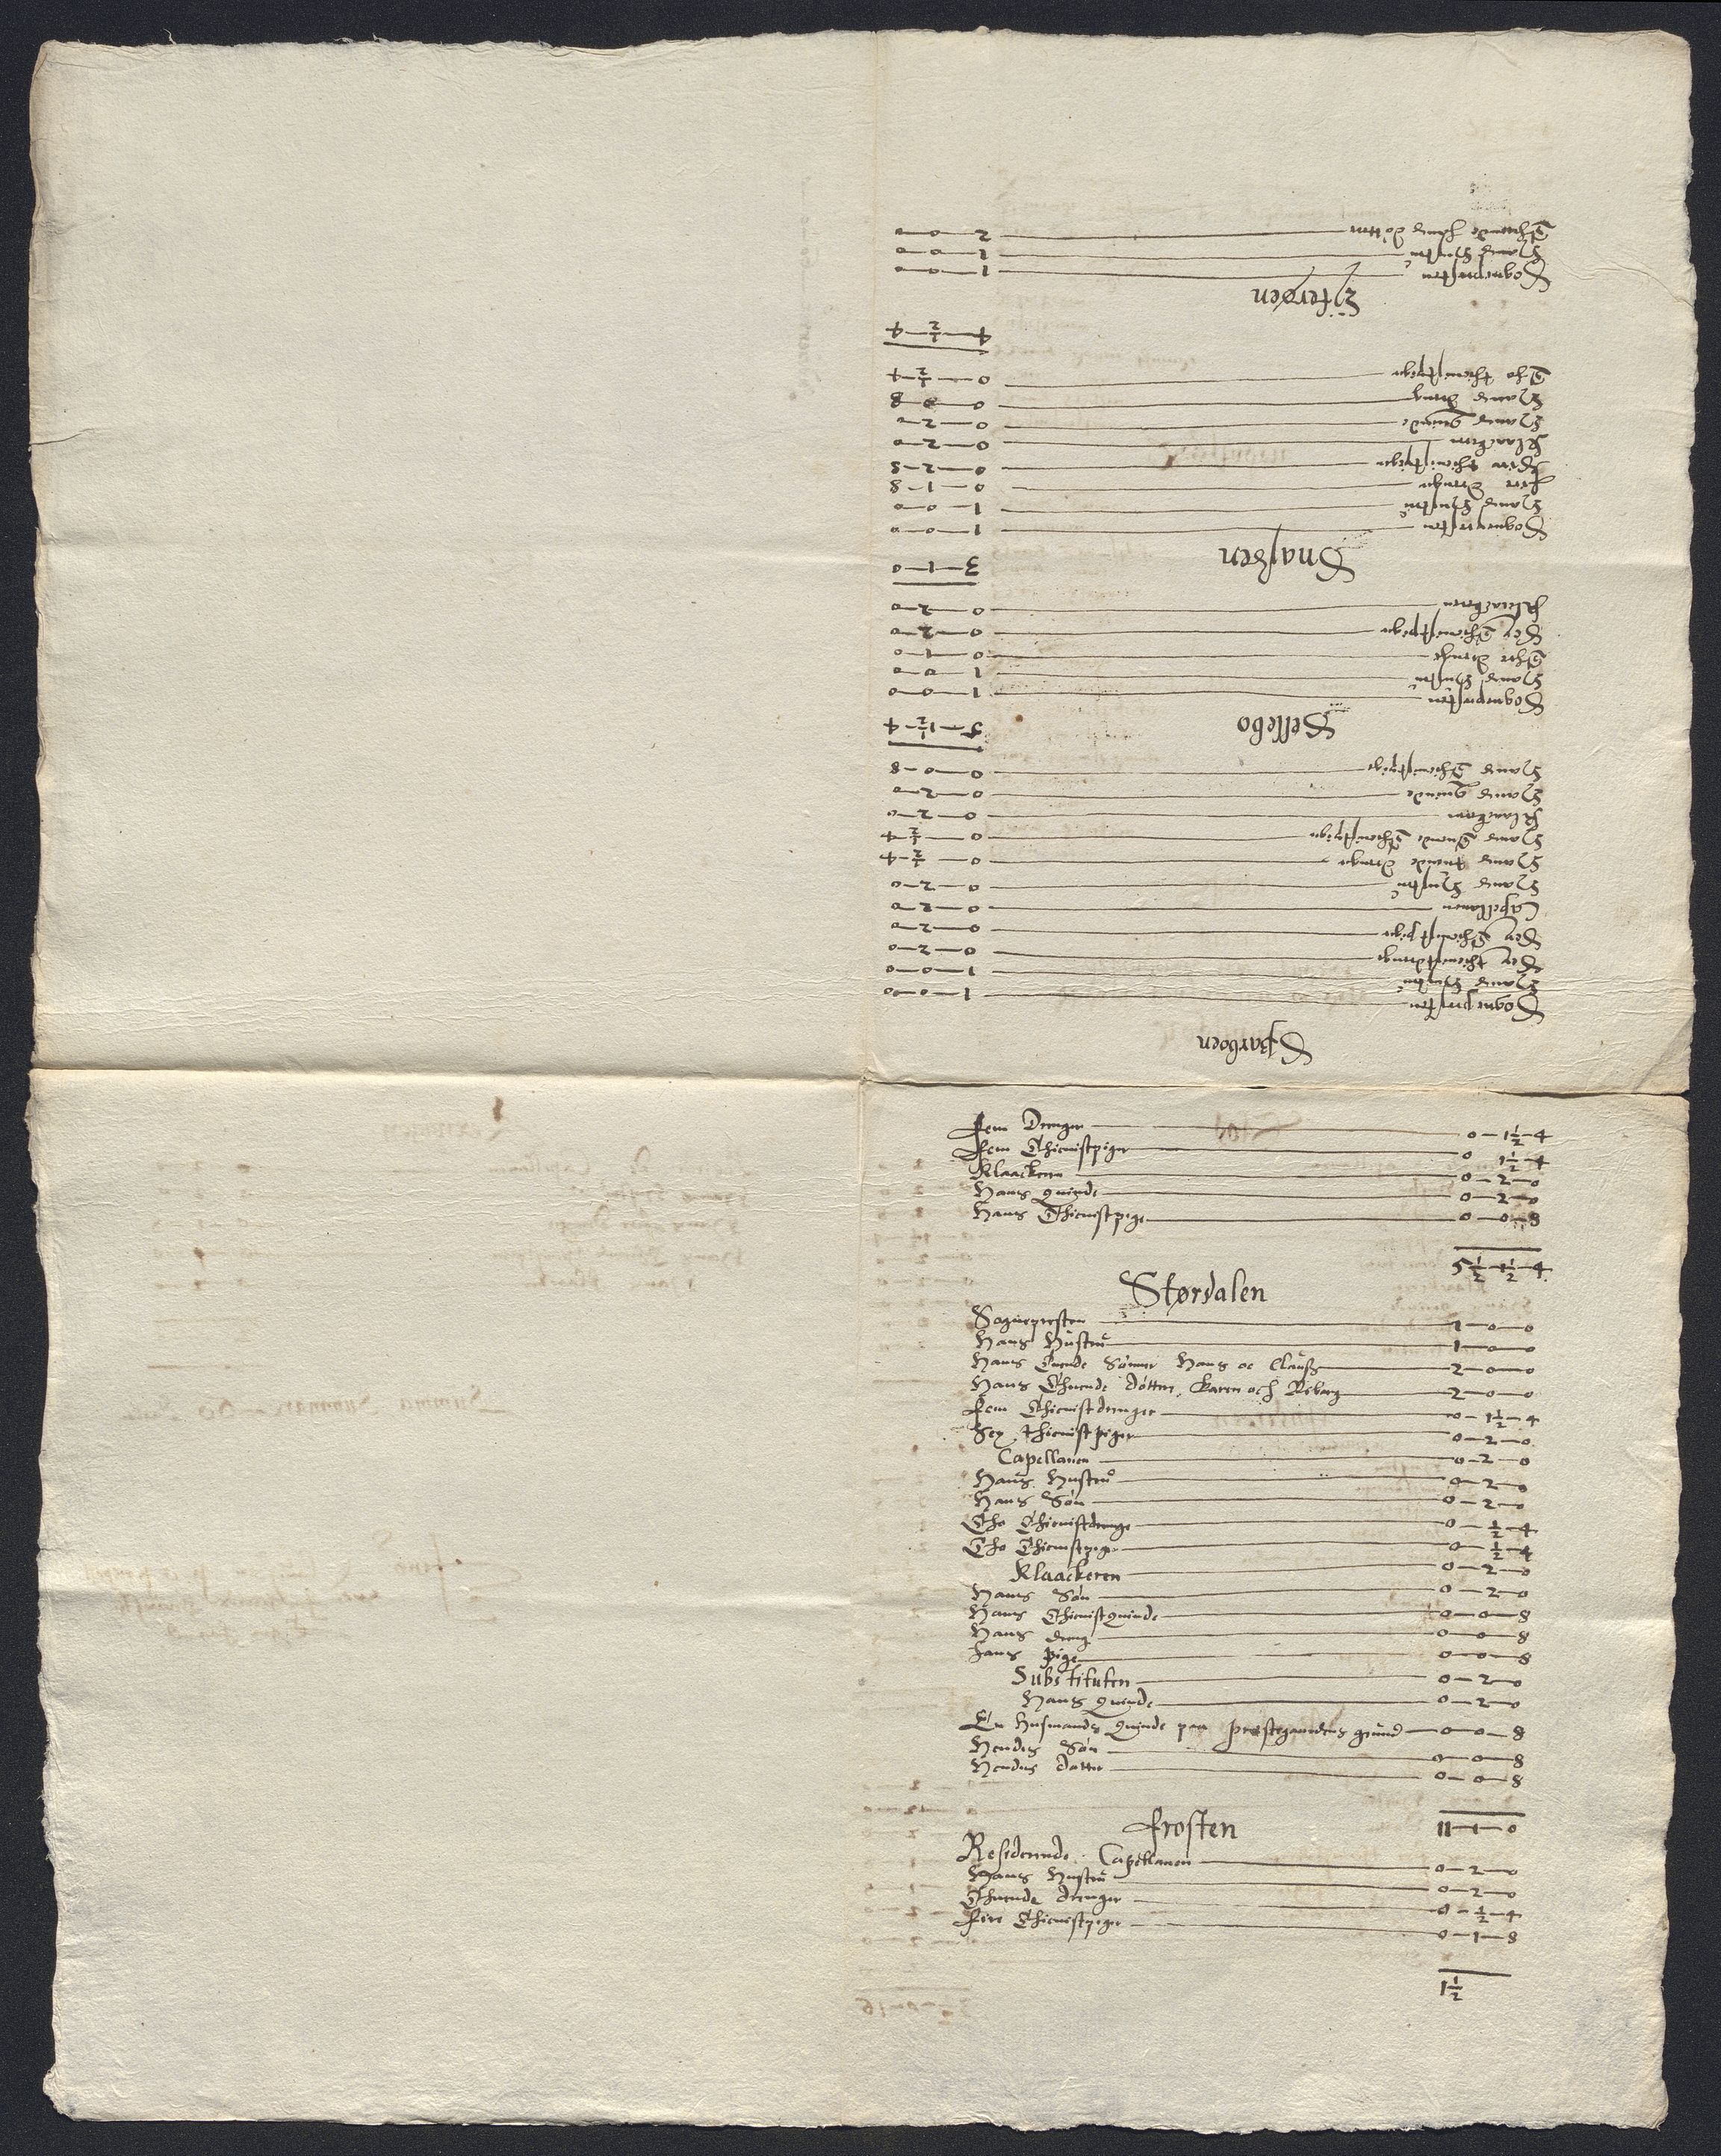 Fem Drenger 0 — 1½ — 4
Fem Thienistpiger 0 1½ — 4
Klaackeren 0 — 2 — 0
Hans Quinde 0 — 2 — 0
Hans Thienistpige 0 — 0 — 8
5½ — 1½ — 4
Størdalen
Sognepresten 1 — 0 — 0
Hans Hustru 1 — 0 — 0
Hans Tuende Sønner Hans oc Clauss 2 — 0 — 0
Hans Thuende døtter, Karen och Rebarg 2 — 0 — 0
Fem Thienistdrenger 0 — 1½ — 4
Sex thienistpiger 0 — 2 — 0
Capellanen 0 — 2 — 0
Hans Hustru 0 — 2 — 0
Hans Søn 0 — 2 — 0
Tho Thienistdrenge 0 — ½ — 4
Tho Thienistpiger 0 — ½ — 4
Klaackeren 0 — 2 — 0
Hans Søn 0 — 2 — 0
Hans Thienistquinde 0 — 0 — 8
Hans dreng 0 — 0 — 8
Hans pige 0 — 0 — 8
Substituten 0 — 2 — 0
Hans Quinde 0 — 2 — 0
En Husmands Quinde paa prestegaardens grund 0 — 0 — 8
Hendis Søn 0 — 0 — 8
Hendis datter 0 — 0 — 8
11 — 1 — 0
Frosten
Residerende Capellanen 0 — 2 — 0
Hans Hustru 0 — 2 — 0
Thuende drenger 0 — ½ — 4
Fire Thienistpiger 0 — 1 — 8
1½
Sparboen
Sognepresten 1 — 0 — 0
Hans Hustru 1 — 0 — 0
Sex thienistdrenge 0 — 2 — 0
Sex Thienistpiger 0 — 2 — 0
Capellanen 0 — 2 — 0
Hans Hustru 0 — 2 — 0
Hans tuende drenger 0 — ½ — 4
Hans Tuende Thienistpiger 0 — ½ — 4
Klaackeren 0 — 2 — 0
Hans Quinde 0 — 2 — 0
Hans Thienistpige 0 — 0 — 8
5 — 1½ — 4
Sellebo
Sognepresten 1 — 0 — 0
Hans Hustru 1 — 0 — 0
Thre drenge 0 — 1 — 0
Sex Thienistpiger 0 — 2 — 0
Klaackeren 0 — 2 — 0
3 — 1 — 0
Snaasen
Sognepresten 1 — 0 — 0
Hans Hustru 1 — 0 — 0
Fire drenger 0 — 1 — 8
thienistpiger 0 — 2 — 8
Klaackeren 0 — 2 — 0
Hans Quinde 0 — 2 — 0
Hans dreng 0 — 0 — 8
Tho thienistpiger 0 — ½ — 4
4 — ½ — 4
Ytterøen
Sognepresten 1 — 0 — 0
Hans Hustru 1 — 0 — 0
Thuende hans døtter 2 — 0 — 0